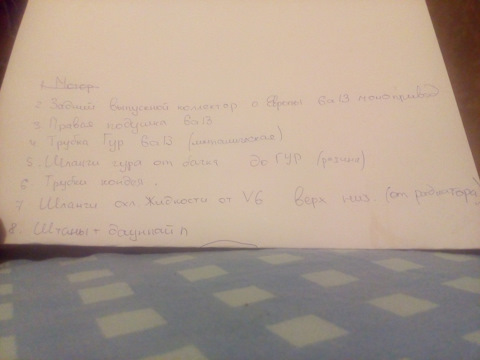 1. Мотор
2 Задний выпускной колектор с Европы 6а13 моно
3 Правая подушка 6а13
4. Трубка Гур 6а13 (металическая)
5. Шланги гура от бачка до ГУР (резина)
6. Трубка кондея.
7 Шланги охл. жидкости от V6 верх низ. (от радиатора)
8 Штаны +